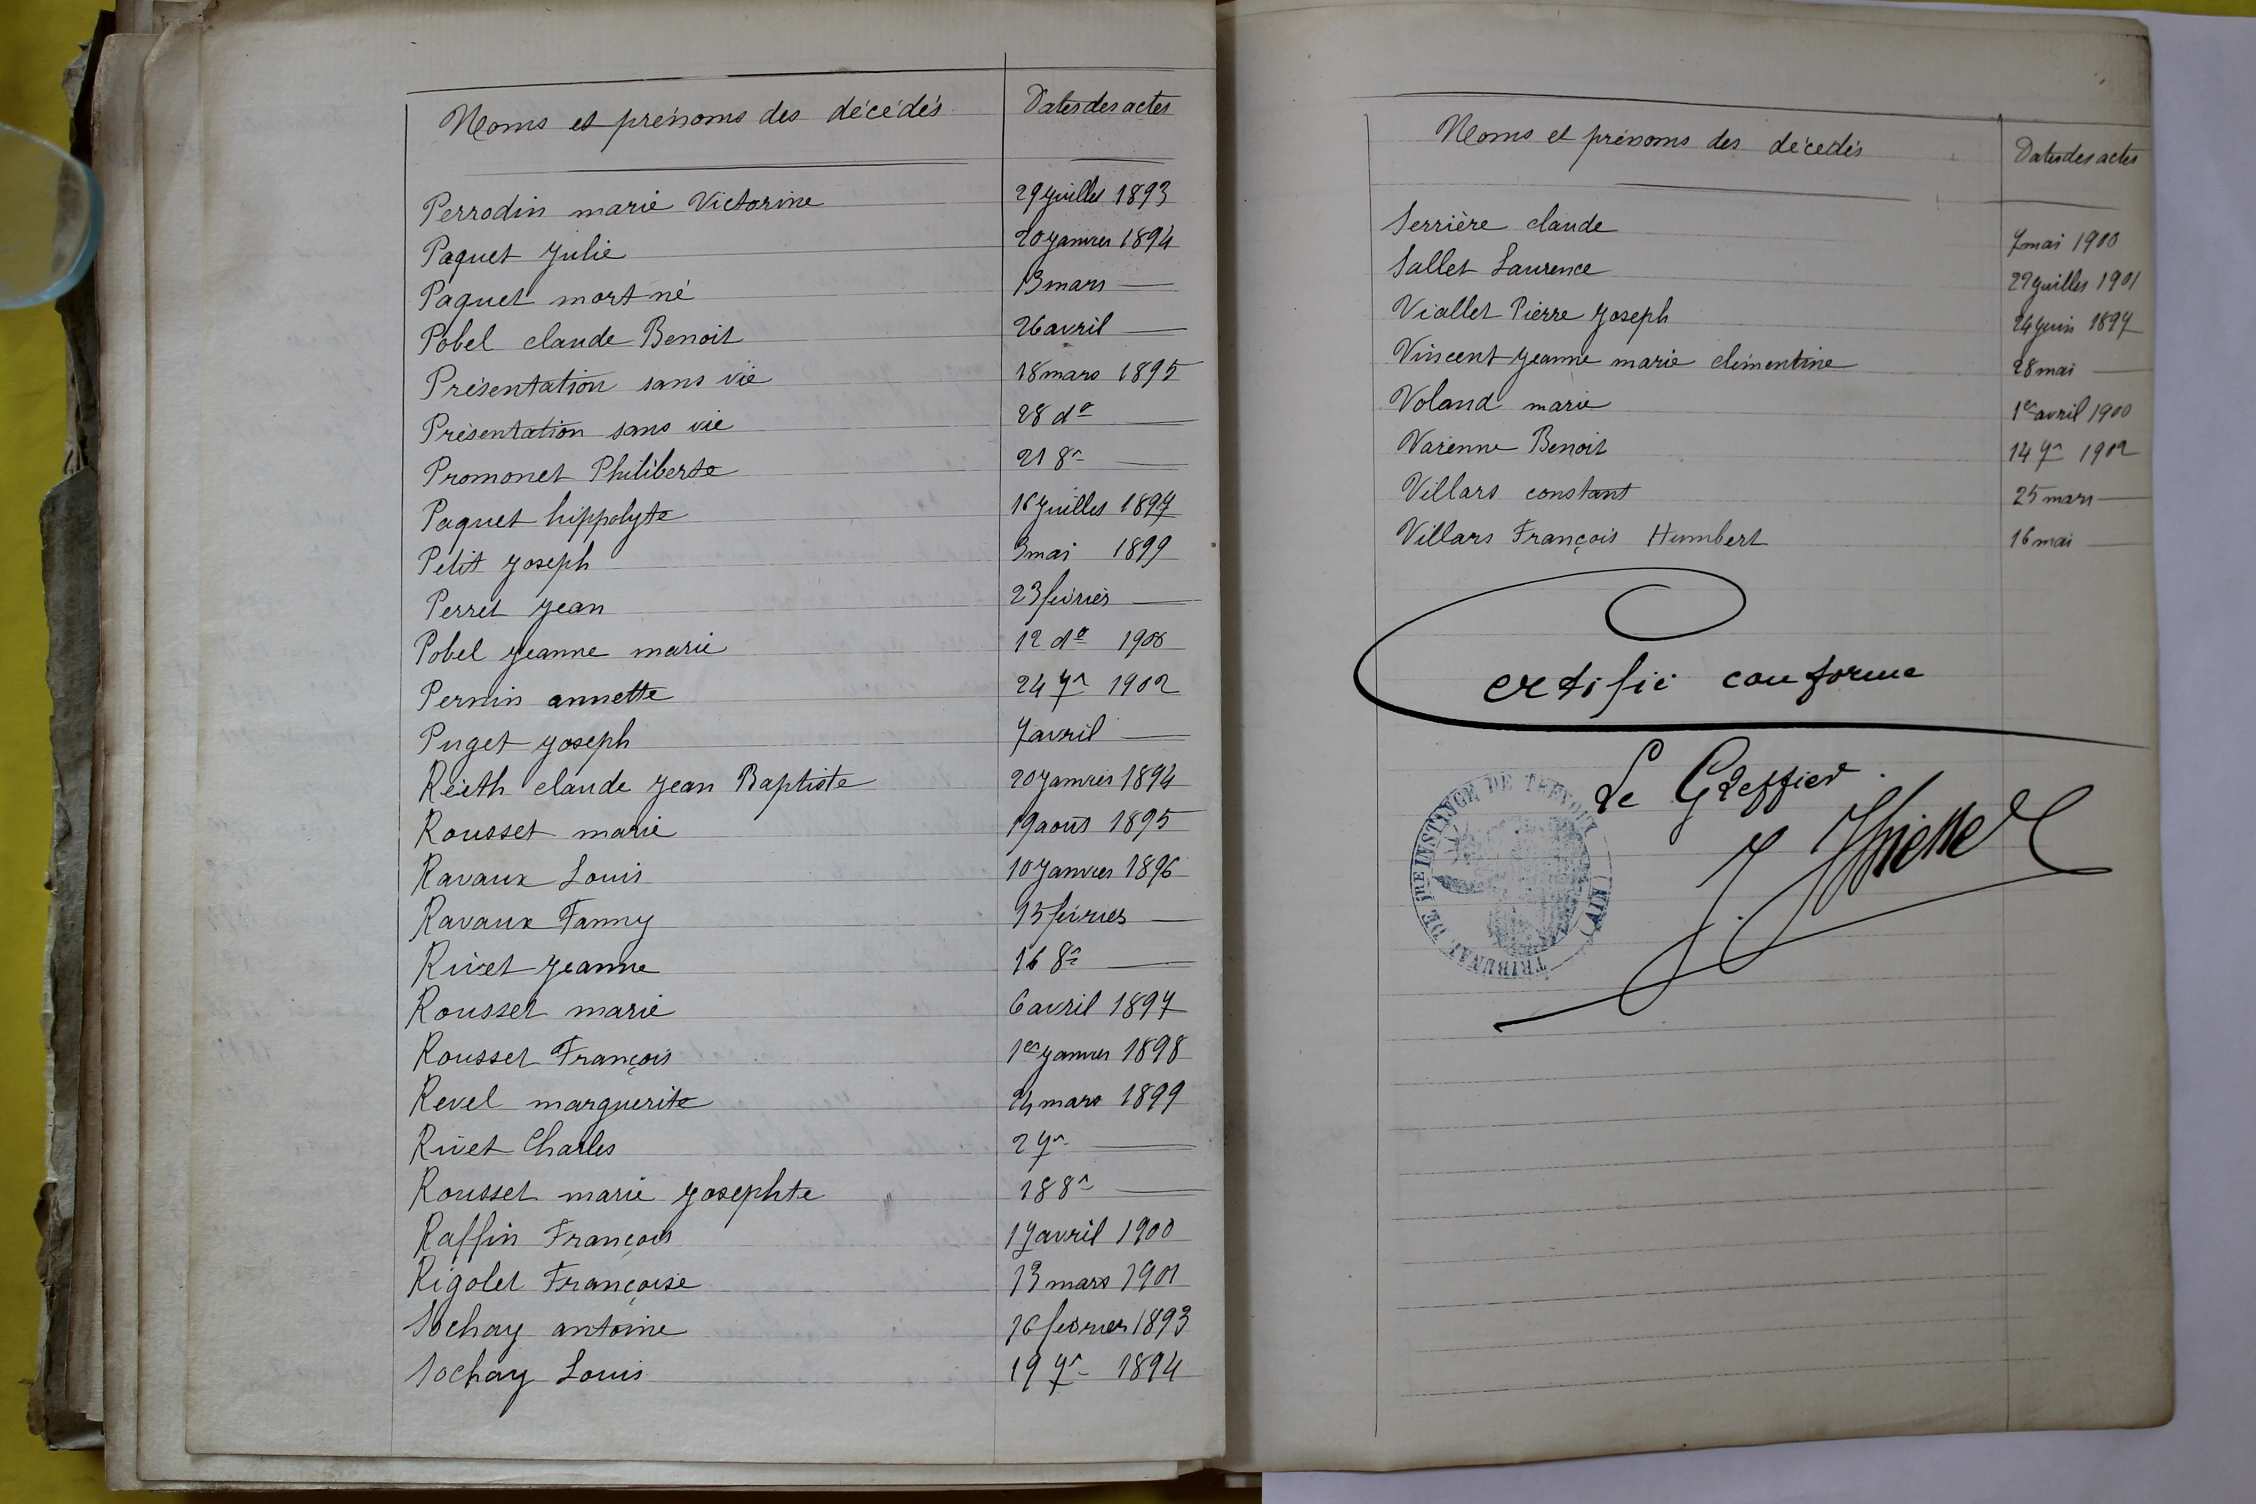 Noms et prénoms des décédés Dates des actes
Perrodin marie Victorine 29 juillet 1893
Paquet julie 20 janvier 1894
Paquet mort né 13 mars —
Pobel claude Benoit 26 avril —
Présentation sans vie 18 mars 1895
Présentation sans vie 28 do —
Promonet Philiberte 21 8re —
Paquet hippolyte 16 juillet 1897
Petit joseph 3 mai 1899
Perret jean 23 février —
Pobel jeanne marie 12 do 1900
Pernin annette 24 7re 1902
Puget joseph 7 avril —
Reith claude jean Baptiste 20 janvier 1894
Rousset marie 19 aout 1895
Ravaux Louis 10 janvier 1896
Ravaux Fanny 13 février —
Rivet jeanne 16 8re —
Rousset marie 6 avril 1897
Rousset François 1er janvier 1898
Revel marguerite 24 mars 1899
Rivet Charles 2 7re —
Rousset marie josephte 18 8re —
Raffin François 17 avril 1900
Rigolet Françoise 13 mars 1901
Sochay antoine 16 février 1893
Sochay Louis 19 7re 1894
Noms et prénoms des décédés Dates des actes
Serrière claude 7 mai 1900
Sallet Laurence 22 juillet 1901
Viallet Pierre joseph 24 juin 1897
Vincent jeanne marie clémentine 28 mai —
Voland marie 1er avril 1900
Varenne Benoit 14 7re 1902
Villars constant 25 mars —
Villars François Humbert 16 mai —
Certifié conforme
Le Greffier
TRIBUNAL DE 1RE INSTANCE DE TREVOUX (AIN)